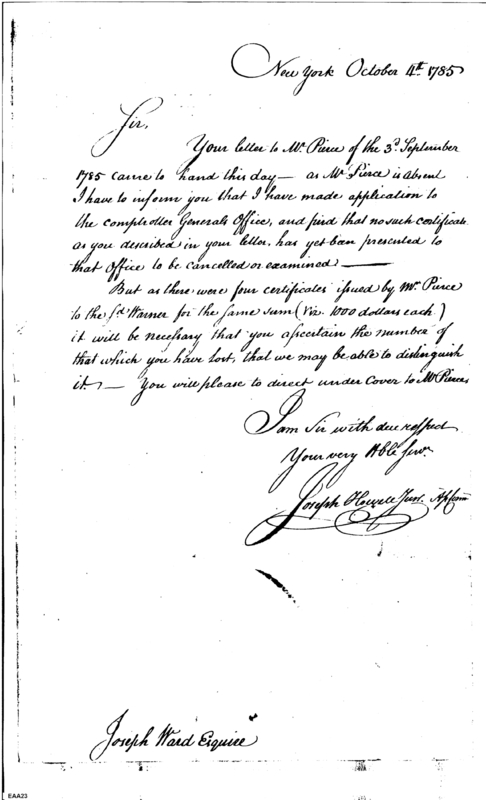 New York October 4th 1785
Sir,
Your letter to Mr. Pierce of the 3d. September
1785 came to hand this day — as Mr Pierce is absent
I have to inform you that I have made application to
the comptroller Generals Office, and find that no such certificate
as you described in your letter, has yet been presented to
that Office to be cancelled or examined —
But as there were four certificates issued by Mr. Pierce
to the sd Warner for the same sum (Viz 1000 dollars each)
it will be necessary that you ascertain the number of
that which you have lost, that we may be able to distinguish
it. — You will please to direct under Cover to Mr Pierce
I am Sir with due respect
Your very Hble Servt.
Joseph Howell Junr.
Joseph Ward Esquire
EAA23